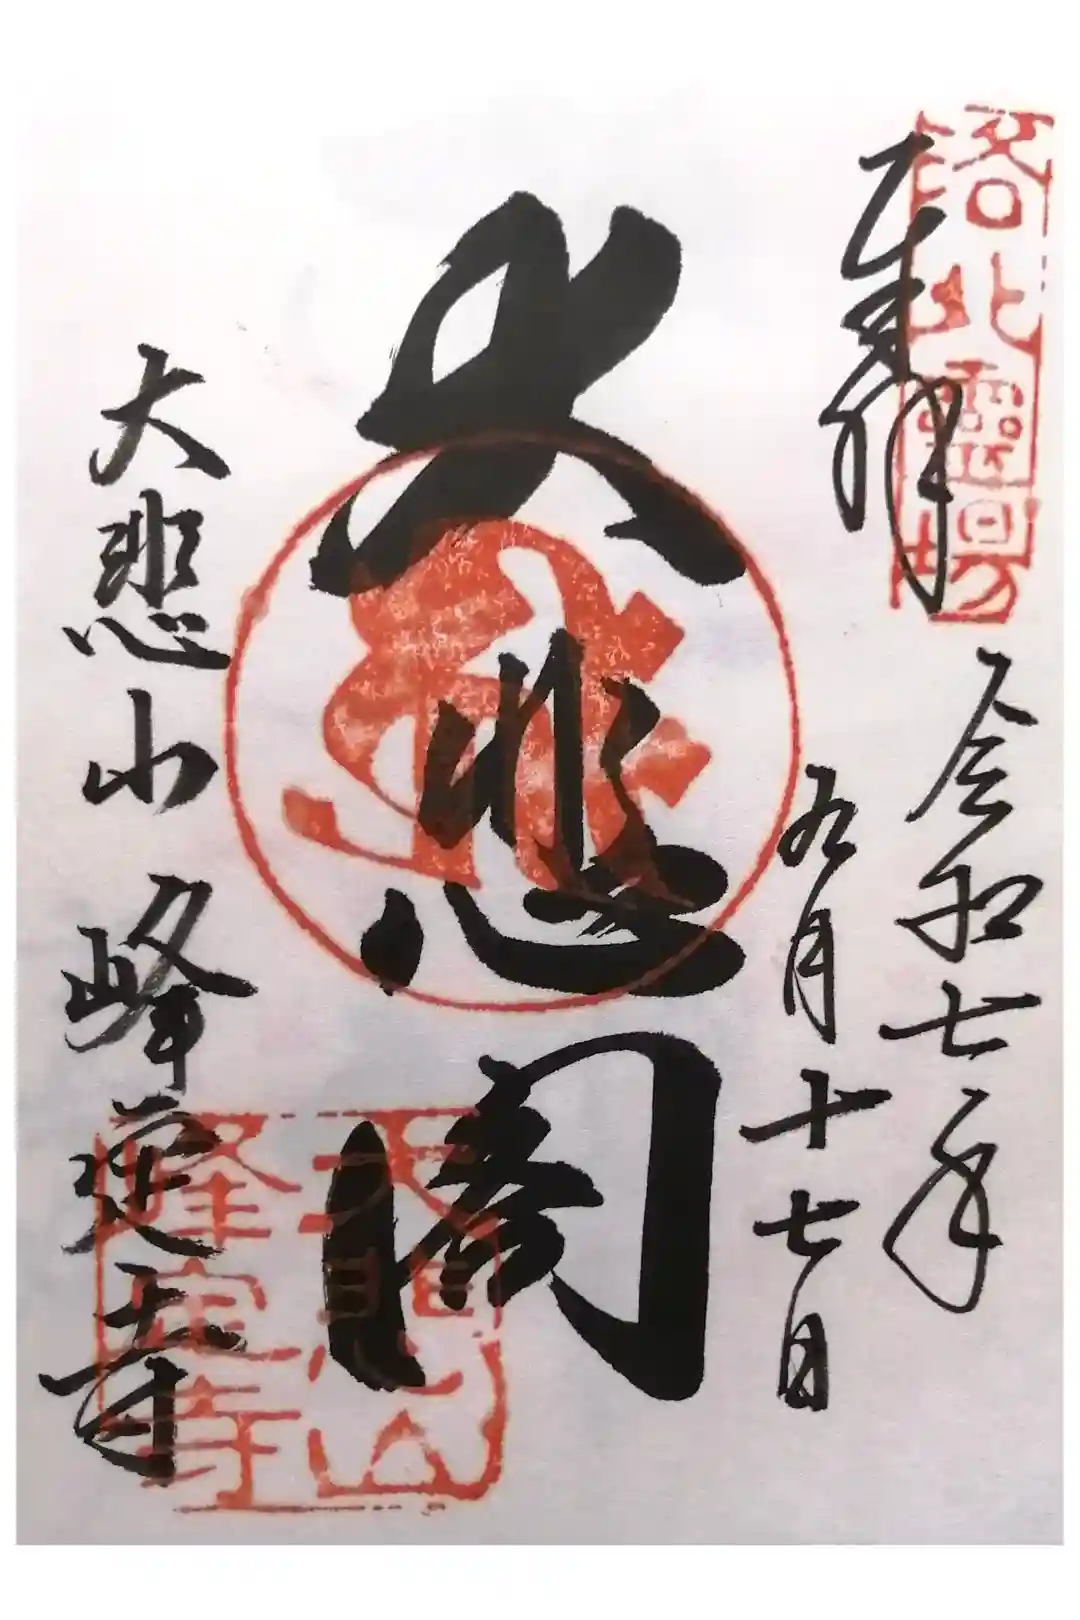 洛北霊場
奉拝
令和七年
九月十七日
大悲閣
大悲山 峰定寺
大悲山
峰定寺